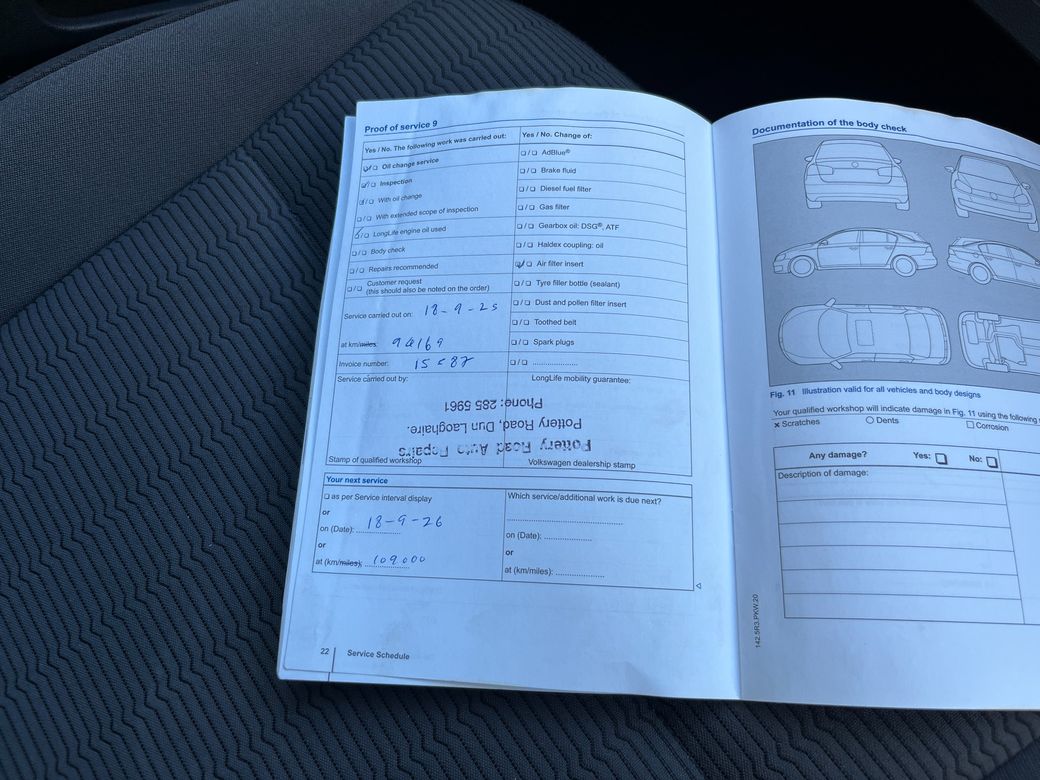 Proof of service 9
Yes / No. The following work was carried out:
☑/☐ Oil change service
☑/☐ Inspection
☑/☐ With oil change
☐/☐ With extended scope of inspection
☑/☐ LongLife engine oil used
☐/☐ Body check
☐/☐ Repairs recommended
☐/☐ Customer request
(this should also be noted on the order)
Service carried out on: 18-9-25
at km/miles:
Invoice number:
Yes / No. Change of:
☐/☐ AdBlue®
☐/☐ Brake fluid
☐/☐ Diesel fuel filter
☐/☐ Gas filter
☐/☐ Gearbox oil: DSG®, ATF
☐/☐ Haldex coupling: oil
☑/☐ Air filter insert
☐/☐ Tyre filler bottle (sealant)
☐/☐ Dust and pollen filter insert
☐/☐ Toothed belt
☐/☐ Spark plugs
☐/☐ ......................
Service carried out by:
LongLife mobility guarantee:
Pottery Road Auto Repairs
Pottery Road, Dun Laoghaire.
Phone: 285 5961
Stamp of qualified workshop
Volkswagen dealership stamp
Your next service
☐ as per Service interval display
or
on (Date): 18-9-26
or
at (km/miles): 109000
Which service/additional work is due next?
on (Date): ..................
or
at (km/miles): ..................
22 Service Schedule
Documentation of the body check
Fig. 11 Illustration valid for all vehicles and body designs
Your qualified workshop will indicate damage in Fig. 11 using the following
× Scratches ○ Dents ☐ Corrosion
Any damage? Yes: ☐ No: ☐
Description of damage:
142.5R3.PKW.20